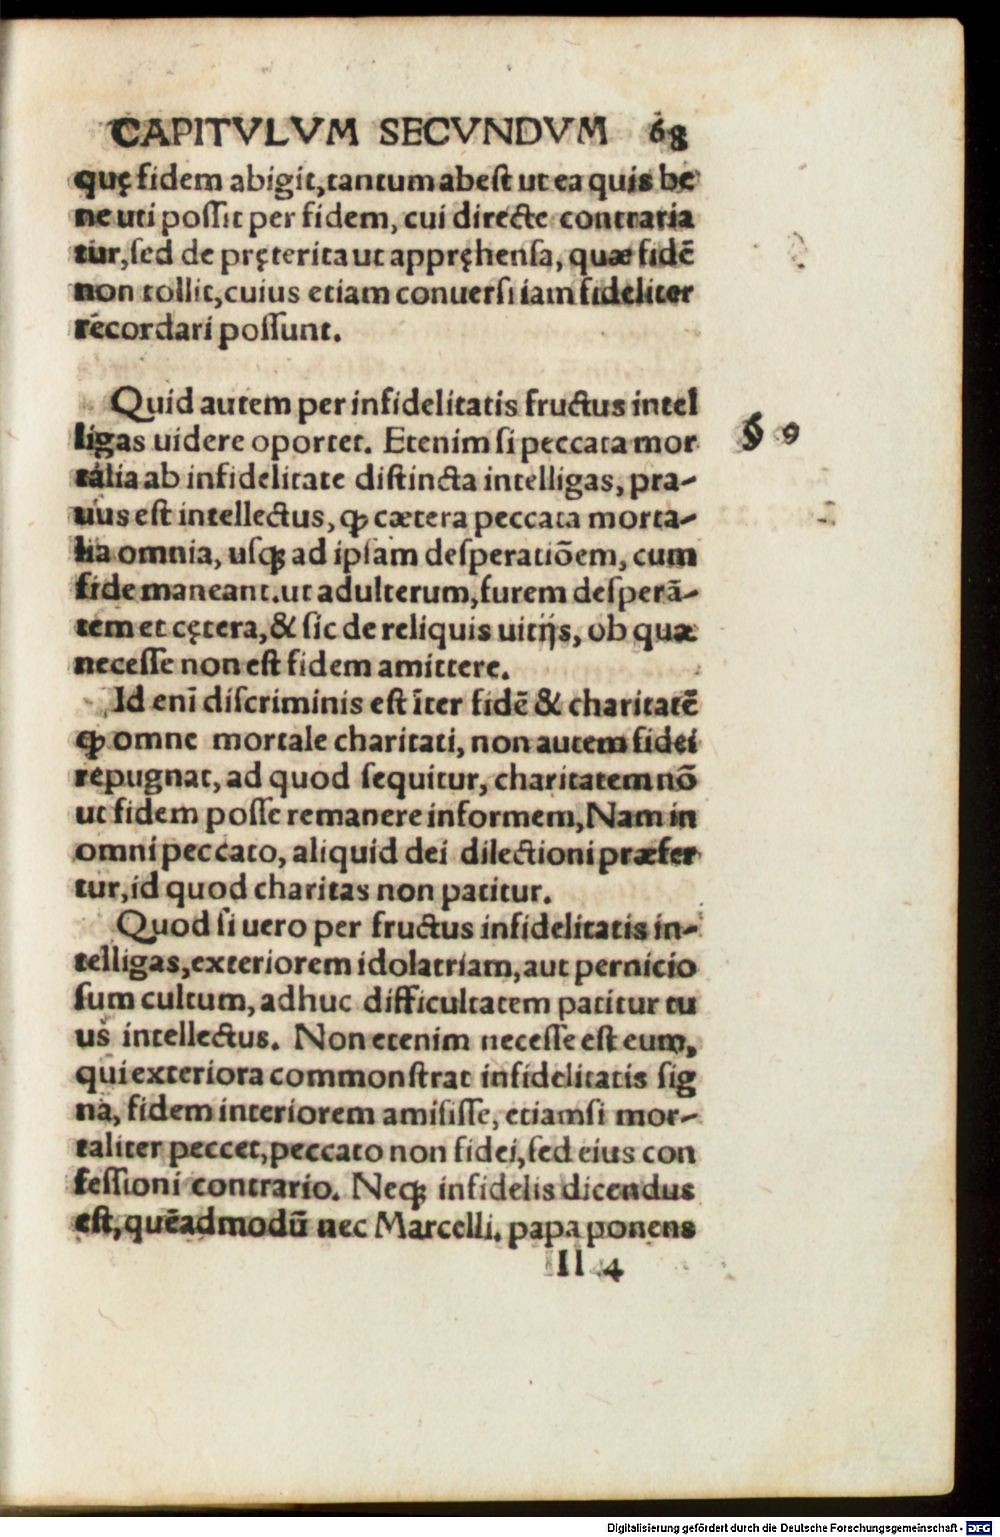 CAPITVLVM SECVNDVM 68
quę fidem abigit, tantum abest ut ea quis be
ne uti possit per fidem, cui directe contraria
tur, sed de pręterita ut appręhensa, quæ fidē
non tollit, cuius etiam conuersi iam fideliter
recordari possunt.
Quid autem per infidelitatis fructus intel
ligas uidere oportet. Etenim si peccata mor
talia ab infidelitate distincta intelligas, pra-
uus est intellectus, ꝙ cætera peccata morta-
lia omnia, usq; ad ipsam desperatiōem, cum
fide maneant. ut adulterum, furem desperā-
tem et cętera, & sic de reliquis uitijs, ob quæ
necesse non est fidem amittere.
§ 9
Id enī discriminis est īter fidē & charitatē
ꝙ omne mortale charitati, non autem fidei
repugnat, ad quod sequitur, charitatem nō
ut fidem posse remanere informem, Nam in
omni peccato, aliquid dei dilectioni præfer
tur, id quod charitas non patitur.
Quod si uero per fructus infidelitatis in-
telligas, exteriorem idolatriam, aut pernicio
sum cultum, adhuc difficultatem patitur tu
us intellectus. Non etenim necesse est eum,
qui exteriora commonstrat infidelitatis sig
na, fidem interiorem amisisse, etiamsi mor-
taliter peccet, peccato non fidei, sed eius con
fessioni contrario. Neq; infidelis dicendus
est, quēadmodū nec Marcelli. papa ponens
Il 4
Digitalisierung gefördert durch die Deutsche Forschungsgemeinschaft - DFG